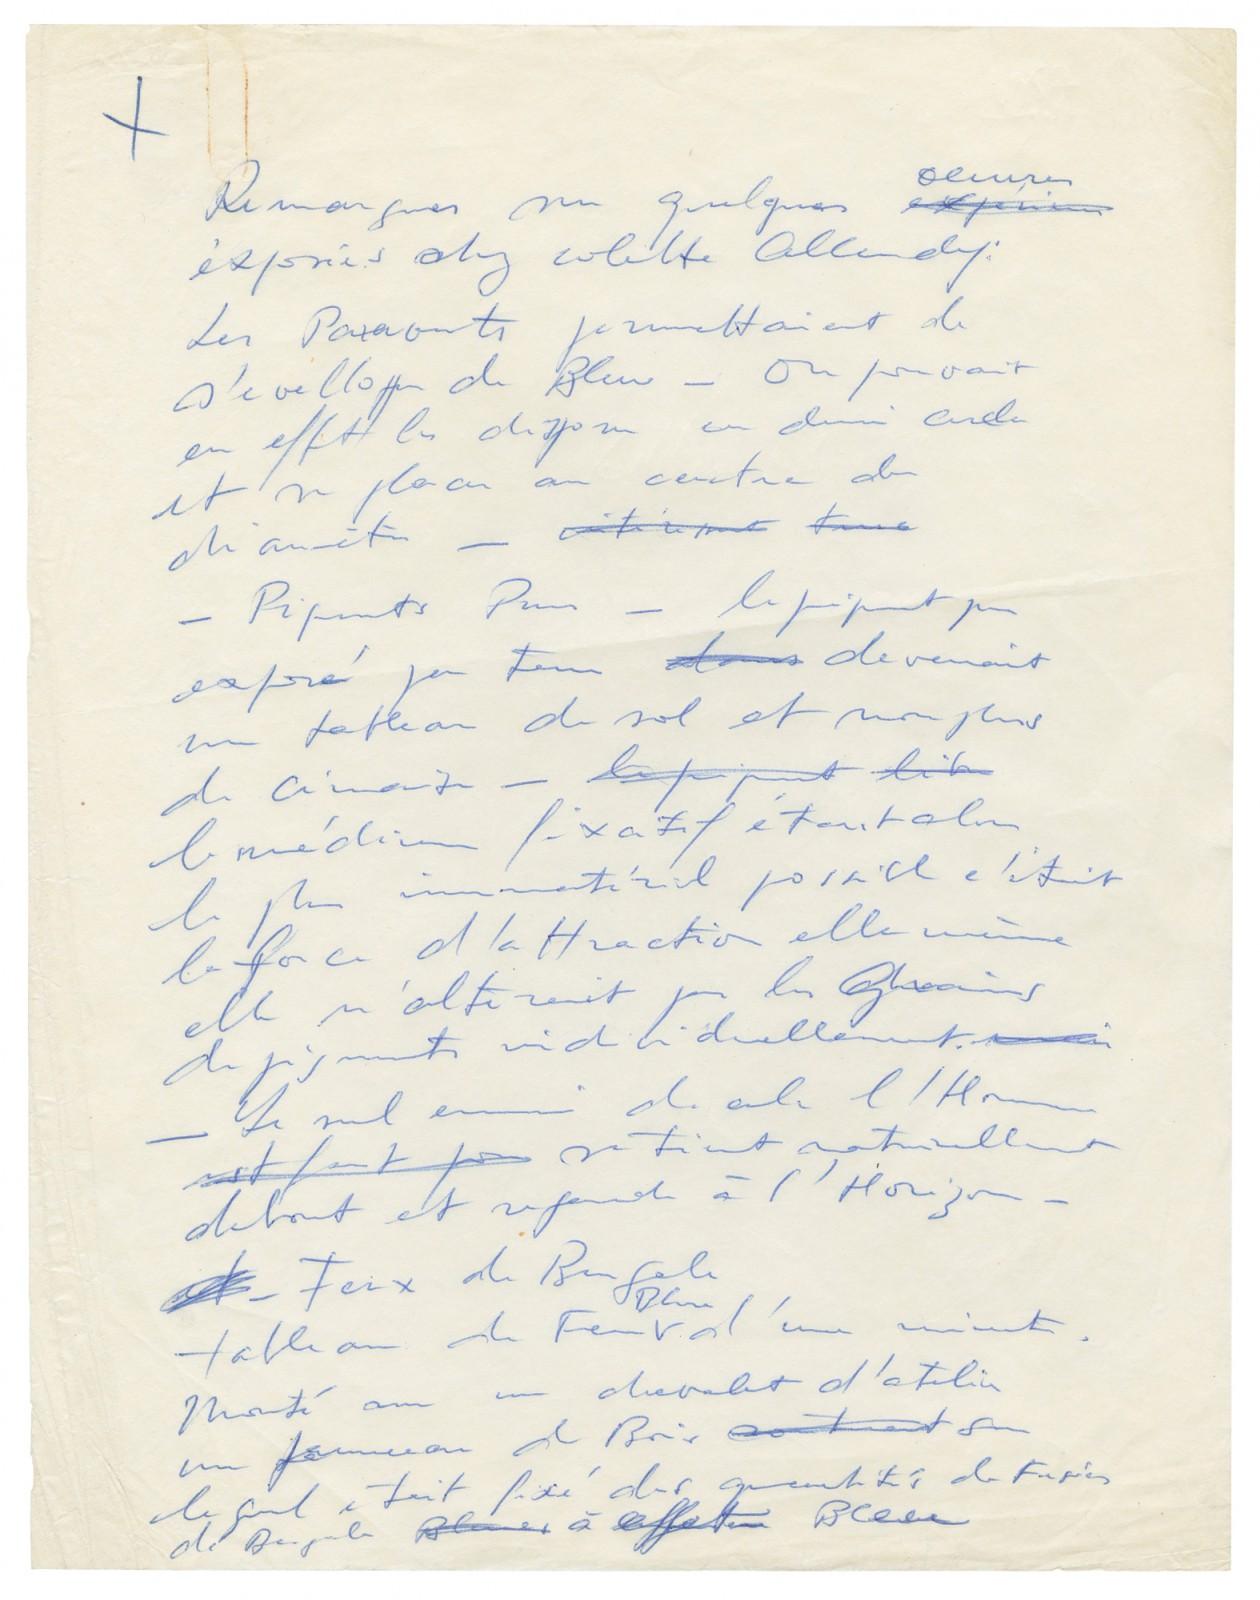 Remarques sur quelques oeuvres
exposées chez colette Allendy:
Les Paravents permettaient de
s'evellopper de Bleu – On pouvait
en effet les disposer en demi cercle
et se placer au centre du
diamètre –
– Pigments Purs – le pigment pur
exposé par terre dans devenait
un tableau de sol et non plus
de cimaise – le pigment libre
le médium fixatif étant alors
le plus immatériel possible c'était
la force d'attraction elle même
elle n'altérait pas les Grains
de pigments individuellement.
– Le seul ennui de cela l'Homme
est fait pour se tient naturellement
debout et regarde à l'Horizon –
– Feux de Bengale
tableau de Feux Bleu d'une minute.
Monté sur un chevalet d'atelier
un panneau de Bois sur
lequel était fixé des quantités de Fusées
de Bengale Bleues à effet Bleue